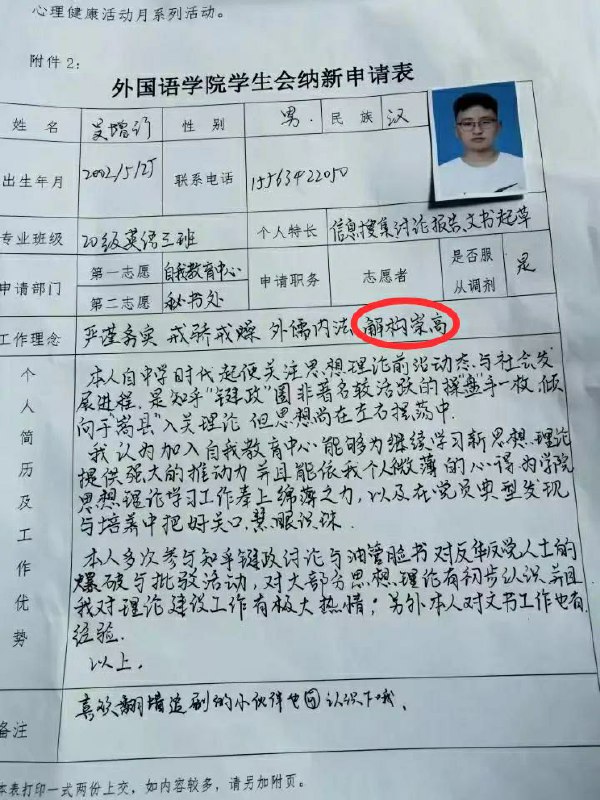 心理健康活动月系列活动。
附件2:
外国语学院学生会纳新申请表
姓名 吴增行 性别 男. 民族 汉
出生年月 2002/5/25 联系电话 15563422050
专业班级 20级英语三班 个人特长 信息搜集讨论报告、文书起草
申请部门 第一志愿 自我教育中心 申请职务 志愿者 是否服从调剂 是
第二志愿 秘书处
工作理念 严谨务实 戒骄戒燥 外儒内法 解构崇高
个人简历及工作优势
本人自中学时代起便关注思想理论前沿动态与社会发
展进程.是知乎"键政"圈非著名较活跃的操盘手一枚,倾
向于嵩县"入关理论,但思想尚在左右摇荡中.
我认为加入自我教育中心能够为继续学习新思想、理论
提供强大的推动力并且能依我个人微薄的心得为学院
思想理论学习工作奉上绵薄之力,以及在党员典型发现
与培养中把好关口,慧眼识珠.
本人多次参与知乎键政讨论与油管脸书对反华反党人士的
爆破与批驳活动,对大部分思想、理论有初步认识并且
我对理论建设工作有极大热情;另外本人对文书工作也有
经验.
以上.
备注 喜欢翻墙追剧的小伙伴也可认识下哦.
本表打印一式两份上交,如内容较多,请另加附页。